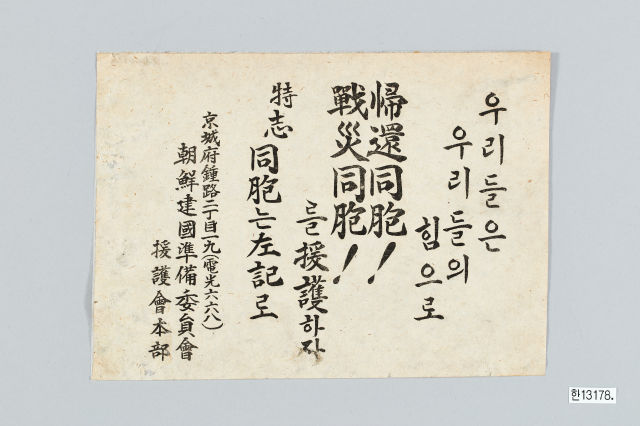 우리들은
우리들의
힘으로
帰還同胞!
戰災同胞!
를 援護하자
特志同胞는 左記로
京城府鍾路二丁目一九(電光六六八)
朝鮮建國準備委員會
援護會本部
한13178.